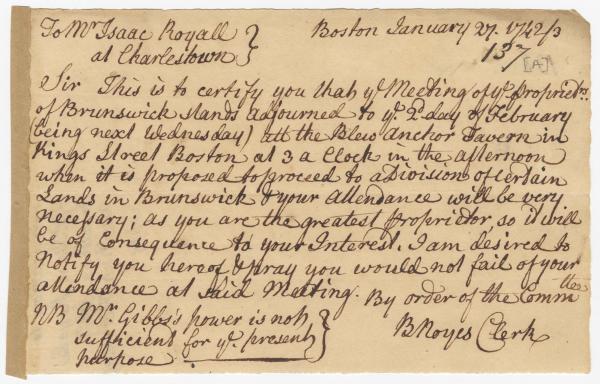 To Mr Isaac Royall } Boston January 27. 1742/3
at Charlestown } 137
[A]
Sir This is to certify you that ye Meeting of ye. proprietrs.
of Brunswick stands adjourned to ye. 2d day of February
(being next Wednesday) att the Blew Anchor Tavern in
Kings Street Boston at 3 a Clock in the afternoon
when it is proposed to proceed to a Division of Certain
Lands in Brunswick & your Attendance will be very
necessary; as you are the greatest proprietor, so it will
be of Consequence to your Interest. I am desired to
Notify you hereof & pray you would not fail of your
attendance at said Meeting. By order of the Committee
NB Mr. Gibbs's power is not
sufficient for ye. present } B Noyes Clerk
purpose